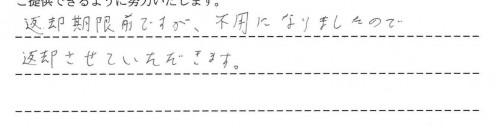 ご提供できるように努力いたします。
返却期限前ですが、不用になりましたので
返却させていただきます。